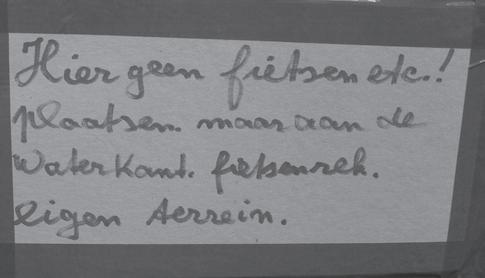 Hier geen fietsen etc.!
plaatsen. maar aan de
waterkant. fietsenrek.
eigen terrein.